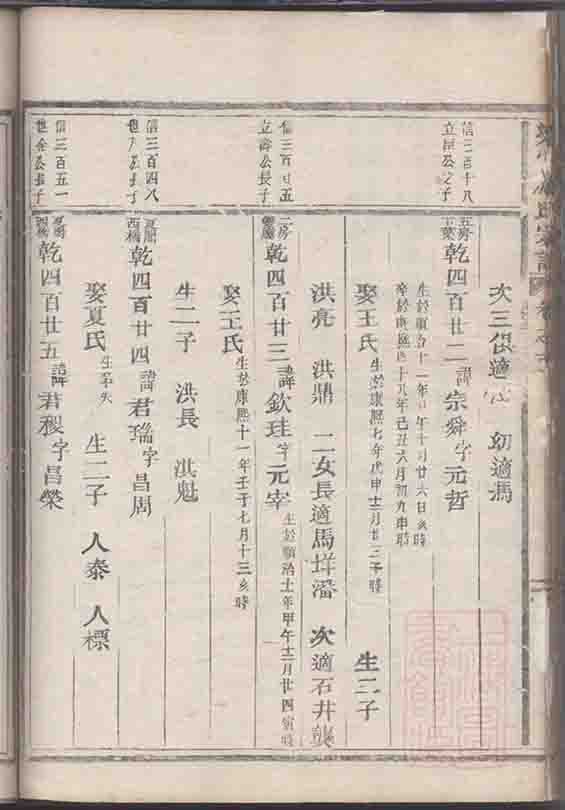 次三俱適 幼適馮
信三百十八
立 公之子
五房
乾四百廿二諱宗舜字元哲
生於順治十一年 午十月廿六日亥時
卒於康熙四十八年己丑六月初九申時
娶王氏生於康熙七年戊申十二月廿三子時 生二子
洪亮 洪鼎 二女長適馬垟潘 次適石井龔
信三百 五
立 公長子
二房
乾四百廿三諱欽珪字元宰生於順治十一年甲午十二月廿四寅時
娶王氏生於康熙十一年壬子七月十三亥時
生二子 洪長 洪魁
信三百四八
西橋
乾四百廿四諱君瑞字昌周
娶夏氏生卒失 生二子 人泰 人標
信三百五一
西橋
乾四百廿五諱君稷字昌榮